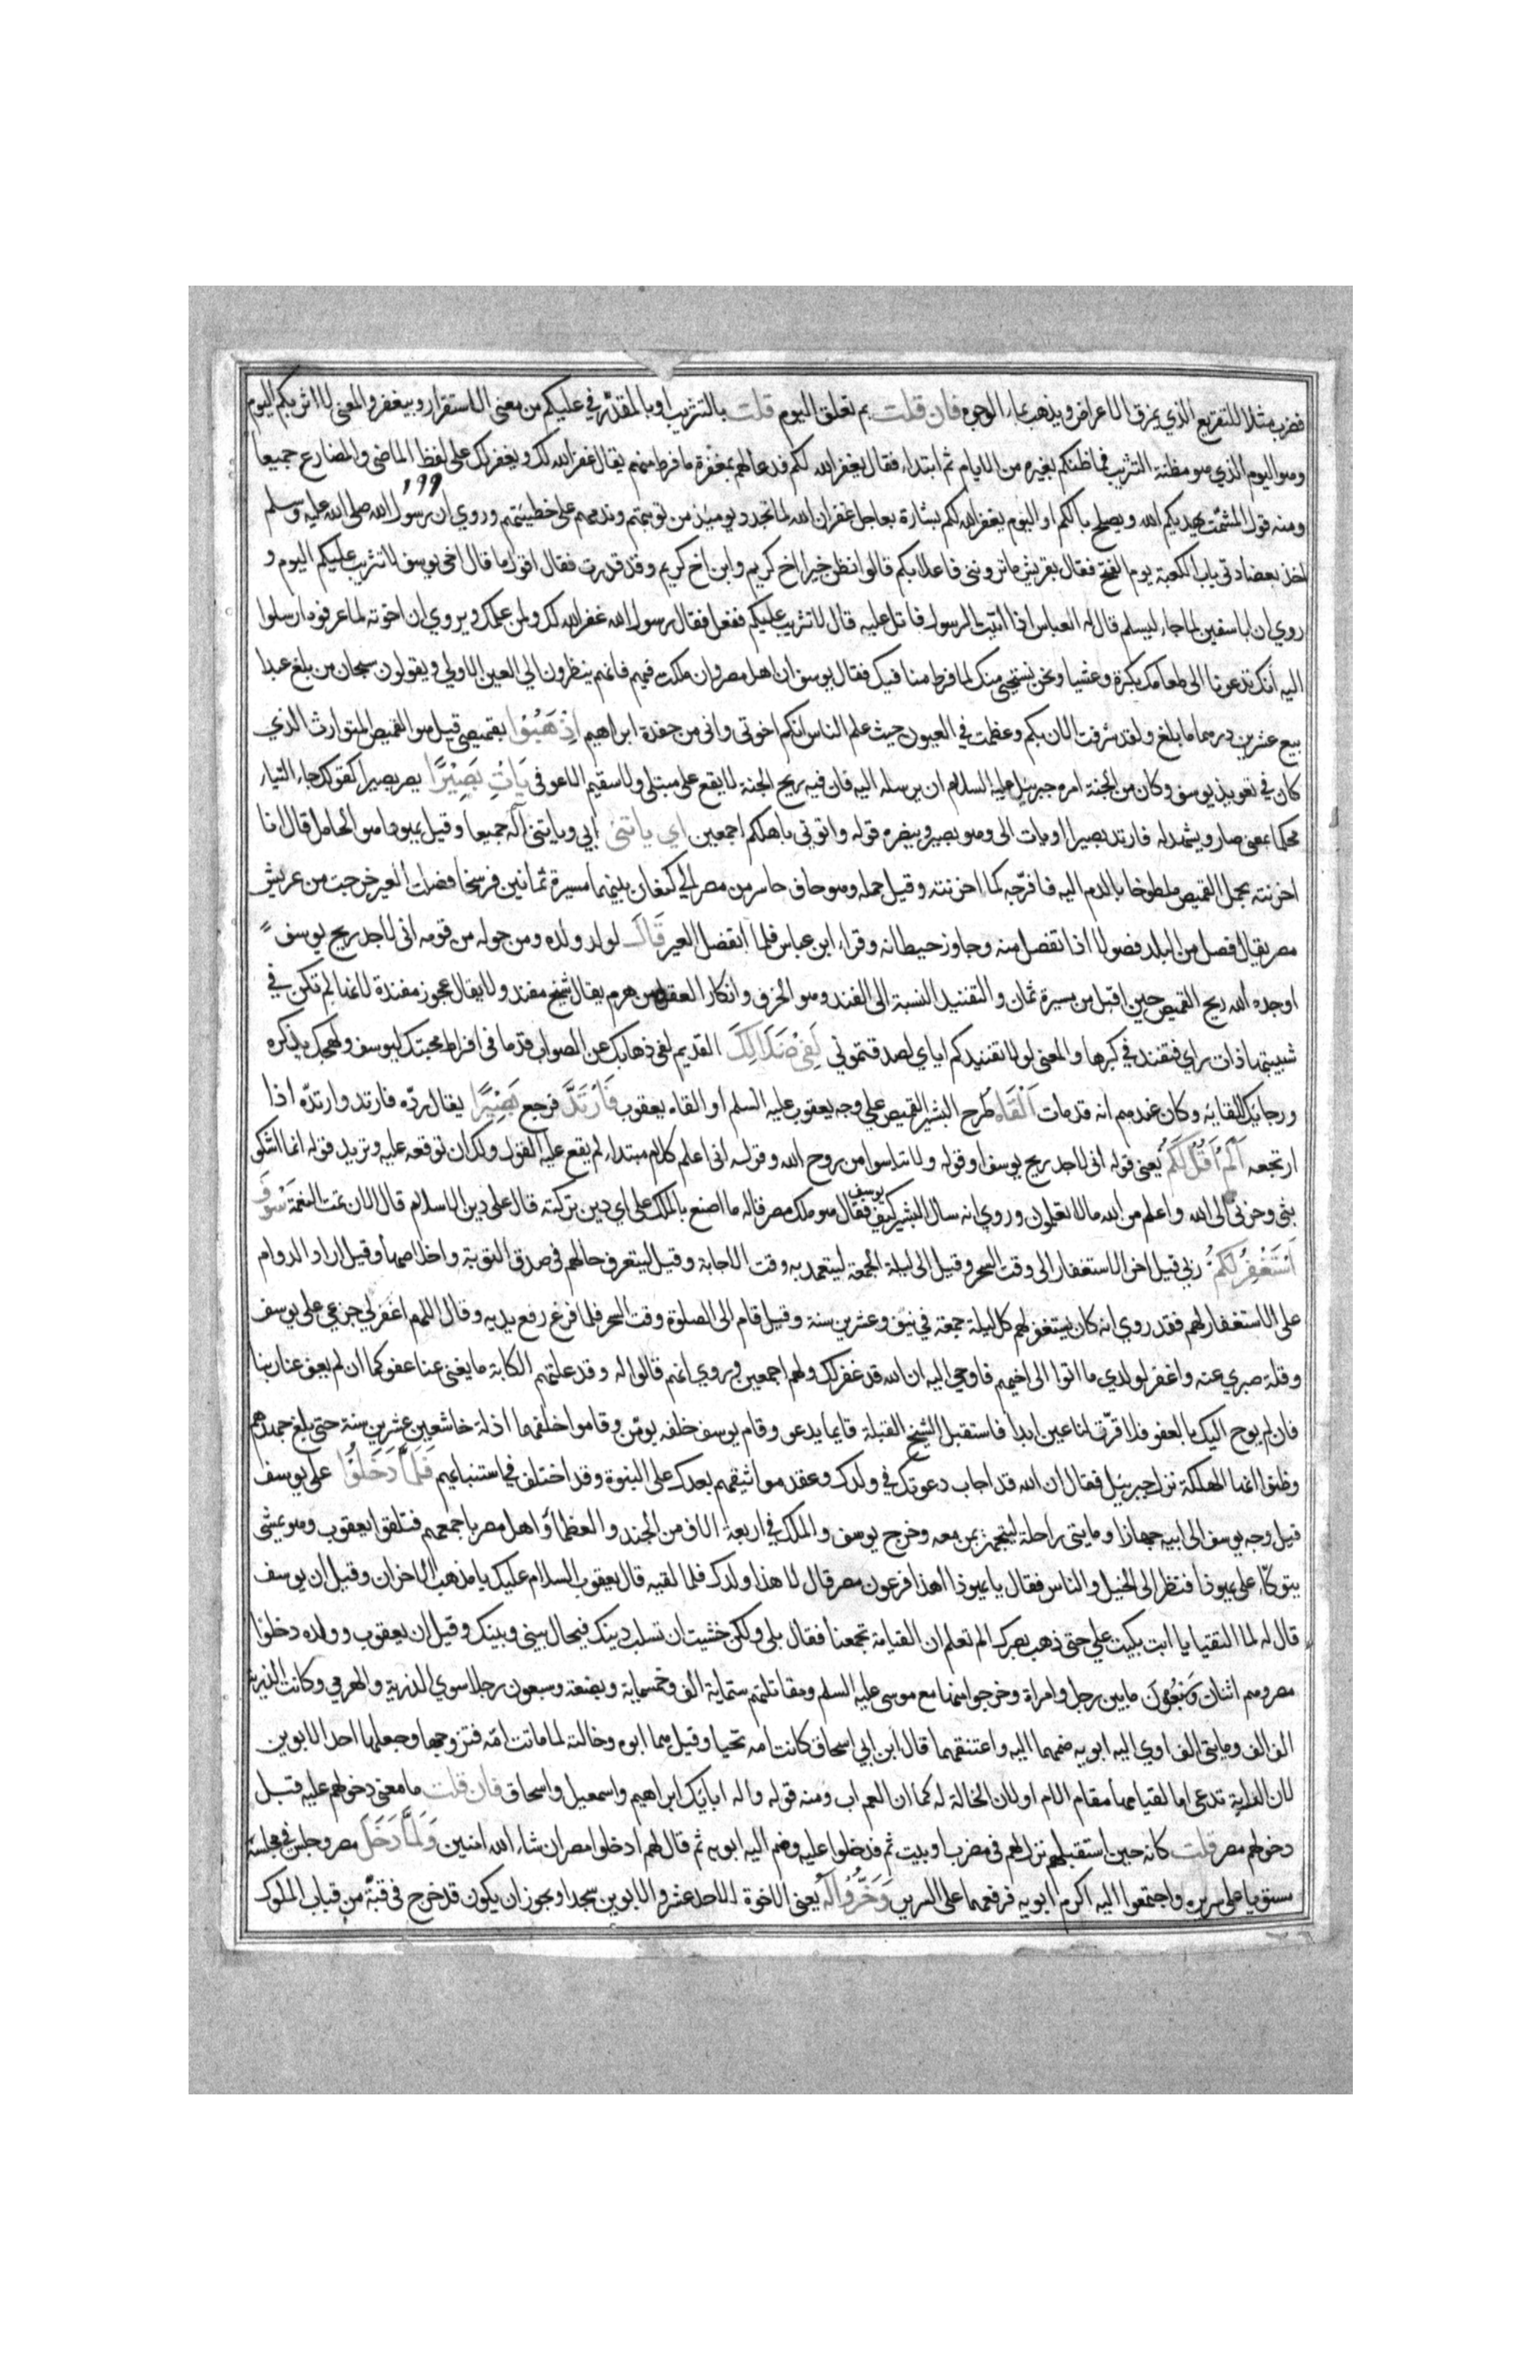 فضرب مثلا للتقريع الذي يمزق الاعراض ويذهب بماء الوجوه فان قلت بم تعلق اليوم قلت بالتثريب او بالمقدر في عليكم من معنى الاستقرار وبيغفر والمعنى لا اثربكم اليوم
وهو اليوم الذي هو مظنة التثريب فما ظنكم بغيره من الايام ثم ابتداء فقال يغفر الله لكم فدعا لهم بمغفرة ما فرط منهم يقال غفر الله لك ويغفر لك على لفظ الماضي والمضارع جميعا
١٩٩
ومنه قول المشمت يهديكم الله ويصلح بالكم او اليوم يغفر الله لكم بشارة بعاجل غفران الله لما تجدد يومئذ من توبتهم وندمهم على خطيئتهم وروي ان رسول الله صلى الله عليه وسلم
اخذ بعضادتي باب الكعبة يوم الفتح فقال لقريش ما ترونني فاعلا بكم قالوا نظن خيرا اخ كريم وابن اخ كريم وقد قدرت فقال اقول ما قال اخي يوسف لا تثريب عليكم اليوم و
روي ان ابا سفين لما جاء ليسلم قال له العباس اذا اتيت الرسول فاتل عليه قال لا تثريب عليكم ففعل فقال رسول الله غفر الله لك ولمن علمك ويروي ان اخوته لما عرفوه ارسلوا
اليه انك تدعونا الى طعامك بكرة وعشيا ونحن نستحيي منك لما فرط منا فيك فقال يوسف ان اهل مصر وان ملكت فيهم فانهم ينظرون الي العين الاولي ويقولون سبحان من بلغ عبدا
بيع عشرين درهما ما بلغ ولقد شرفت الان بكم وعظمت في العيون حيث علم الناس انكم اخوتي واني من حفدة ابراهيم اذهبوا بقميصي قيل هو القميص المتوارث الذي
كان في تعويذ يوسف وكان من الجنة امره جبرئيل عليه السلام ان يرسله اليه فان فيه ريح الجنة لا يقع على مبتلى ولا سقيم الا عوفي يات بصيرا يصر بصيرا كقولك جاء البناء
محكما بمعنى صار ويشهد له فارتد بصيرا او يات الى وهو بصير وينصره قوله واتوني باهلكم اجمعين اي ياتني ابي وياتني آله جميعا وقيل يهودا هو الحامل قال انا
احزنته بحمل القميص ملطوخا بالدم اليه فافرحه كما احزنته وقيل حمله وهو حاف حاسر من مصر الي كنعان بينهما مسيرة ثمانين فرسخا فصلت العير خرجت من عريش
مصر يقال فصل من البلد فصولا اذا انفصل منه وجاوز حيطانه وقراء ابن عباس فلما انفصل العير قال لولد ولده ومن حوله من قومه اني لاجد ريح يوسف
اوجده الله ريح القميص حين اقبل من مسيرة ثمان والتفنيد النسبة الى الفند وهو الخرف وانكار العقل من هرم يقال شيخ مفند ولا يقال عجوز مفندة لانها لم تكن في
شبيبتها ذات راي فتفند في كبرها والمعنى لولا تفنيدكم اياي لصدقتموني لفي ضلالك القديم لفي ذهابك عن الصواب قدما في افراط محبتك ليوسف ولهجك بذكره
ورجائك للقائه وكان عندهم انه قد مات القاه طرح البشير القميص على وجه يعقوب عليه السلم او القاه يعقوب فارتد فرجع بصيرا يقال رده فارتد وارتده اذا
ارتجعه الم اقل لكم يعني قوله اني لاجد ريح يوسف او قوله ولا تياسوا من روح الله وقوله اني اعلم كلام مبتداء لم يقع عليه القول ولك ان توقعه عليه وتريد قوله انما اشكو
بثي وحزني الى الله واعلم من الله مالا تعلمون وروي انه سال البشير كيف يوسف فقال هو ملك مصر قال ما اصنع بالملك على اي دين تركته قال على دين الاسلام قال الان تمت النعمة سوف
استغفر لكم ربي قيل اخر الاستغفار الى وقت السحر وقيل الى ليلة الجمعة ليتعمد به وقت الاجابة وقيل ليتعرف حالهم في صدق التوبة واخلاصها وقيل اراد الدوام
على الاستغفار لهم فقد روي انه كان يستغفر لهم كل ليلة جمعة في نيف وعشرين سنة وقيل قام الى الصلوة وقت السحر فلما فرغ رفع يديه وقال اللهم اغفر لي جزعي على يوسف
وقلة صبري عنه واغفر لولدي ما اتوا الى اخيهم فاوحي اليه ان الله قد غفر لك ولهم اجمعين وروي انهم قالوا له وقد علتهم الكابة ما يغني عنا عفوكما ان لم يعف عنا ربنا
فان لم يوح اليك بالعفو فلا قرت لنا عين ابدا فاستقبل الشيخ القبلة قايما يدعو وقام يوسف خلفه يومن وقاموا خلفهما اذلة خاشعين عشرين سنة حتى بلغ جهدهم
وظنوا انها الهلكة نزل جبرئيل فقال ان الله قد اجاب دعوتك في ولدك وعقد مواثيقهم بعدك على النبوة وقد اختلف في استنبائهم فلما دخلوا على يوسف
قيل وجه يوسف الى ابيه جهازا ومايتي راحلة ليتجهز بمن معه وخرج يوسف والملك في اربعة الاف من الجند والعظماء واهل مصر باجمعهم فتلقوا يعقوب وهو يمشي
يتوكاء على يهوذا فنظر الى الخيل والناس فقال يا يهوذا اهذا فرعون مصر قال لا هذا ولدك فلما لقيه قال يعقوب السلام عليك يا مذهب الاحزان وقيل ان يوسف
قال له لما التقيا يا ابت بكيت علي حتى ذهب بصرك الم تعلم ان القيامة تجمعنا فقال بلى ولكن خشيت ان تسلب دينك فيحال بيني وبينك وقيل ان يعقوب وولده دخلوا
مصر وهم اثنان وسبعون ما بين رجل وامراة وخرجوا منها مع موسى عليه السلم ومقاتلتهم ستماية الف وخمسماية وبضعة وسبعون رجلا سوي الذرية والهرمي وكانت الذرية
الف الف ومايتي الف اوي اليه ابويه ضمهما اليه واعتنقهما قال ابن ابي اسحاق كانت امه تحيا وقيل هما ابوه وخالته لما ماتت امه فتزوجها وجعلها احد الابوين
لان الرابة تدعى اما لقيامها مقام الام او لان الخالة له كما ان العم اب ومنه قوله واله ابائك ابراهيم واسمعيل واسحاق فان قلت ما معنى دخولهم عليه قبل
دخولهم مصر قلت كانه حين استقبلهم نزل لهم في مضرب او بيت ثم فدخلوا عليه وضم اليه ابويه ثم قال لهم ادخلوا مصر ان شاء الله امنين ولما دخل مصر وجلس في مجلسه
مستويا على سريره واجتمعوا اليه اكرم ابويه فرفعهما على السرير وخروا له يعني الاخوة الاحد عشر والابوين سجدا ويجوز ان يكون قد خرج في قبة من قباب الملوك